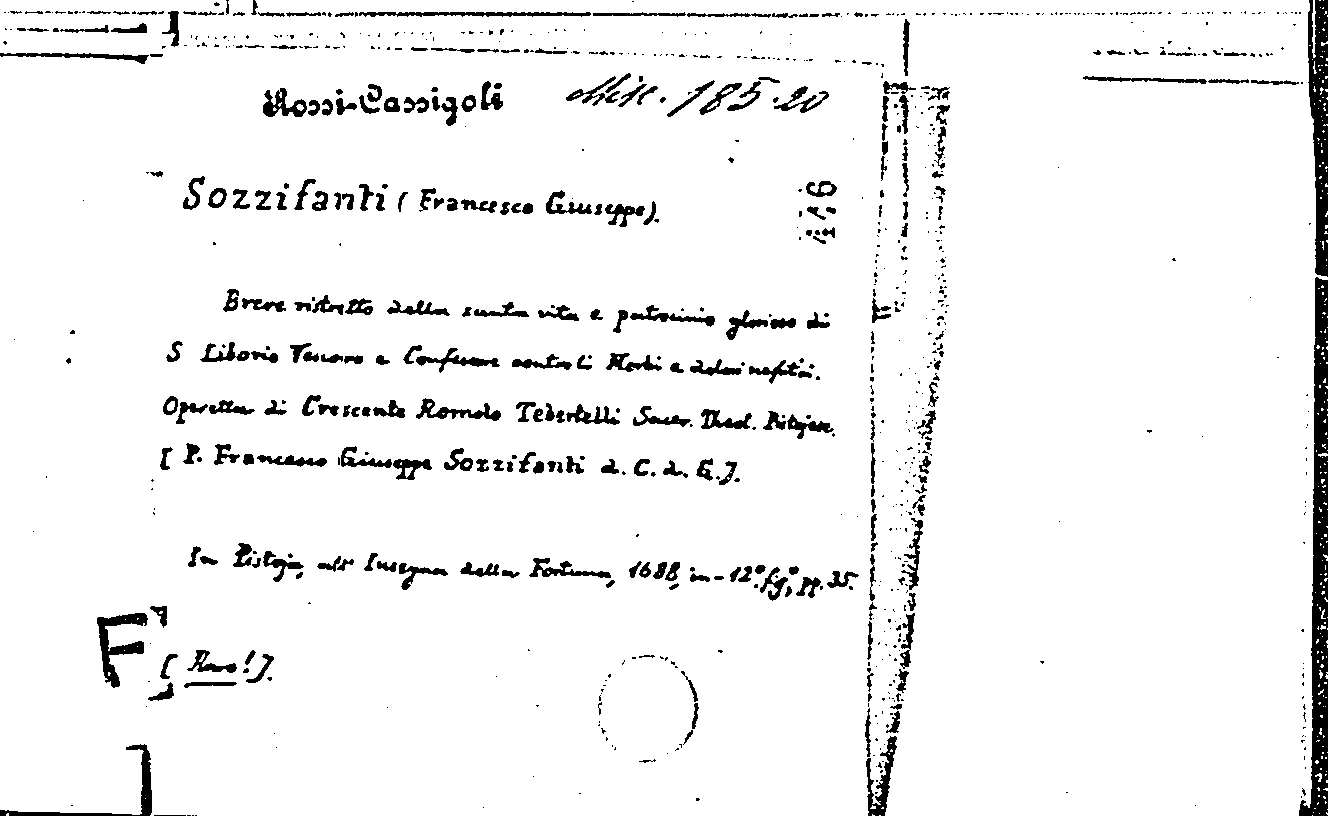 Rossi-Cassigoli Misc. 185.20
Sozzifanti (Francesco Giuseppe).
446
Breve ristretto della santa vita e patrocinio glorioso di
S Liborio Vescovo e Confessore contro li Morbi e dolori nefritici.
Operetta di Crescente Romolo Tebertelli Sacer. Theol. Pistojese.
[ P. Francesco Giuseppe Sozzifanti d. C. d. G.].
In Pistoja, all' Insegna della Fortuna, 1688, in-12°. fig°, pp. 35.
F
[ Raro! ].